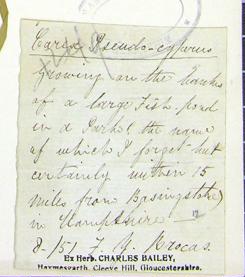 Carex Pseudo-cyperus
Growing on the banks
of a large Fish pond
in a Park, the name
of which I forget but
certainly within 15
miles from Basingstoke
in Hampshire
8-/51 F. Y. Brocas.
Ex Herb. CHARLES BAILEY,
Haymesgarth, Cleeve Hill, Gloucestershire.